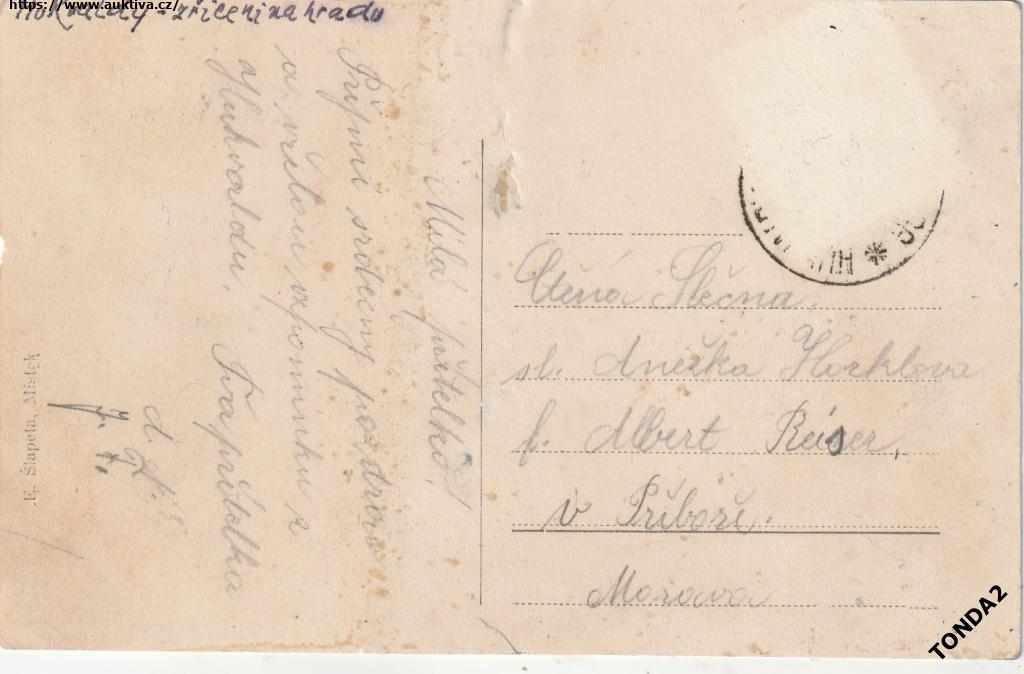 https://www.auktiva.cz/
Hukvaldy - zřícenina hradu
Milá přítelko!
Přijmi srdečný pozdrav
a vřelou vzpomínku z
Hukvaldu. Tvá přítelka
E. Šlapeta, Místek
Ctěná Slečna
sl. Anežka Horklova
f. Albert Reiser,
v Příboře.
Morava
TONDA2